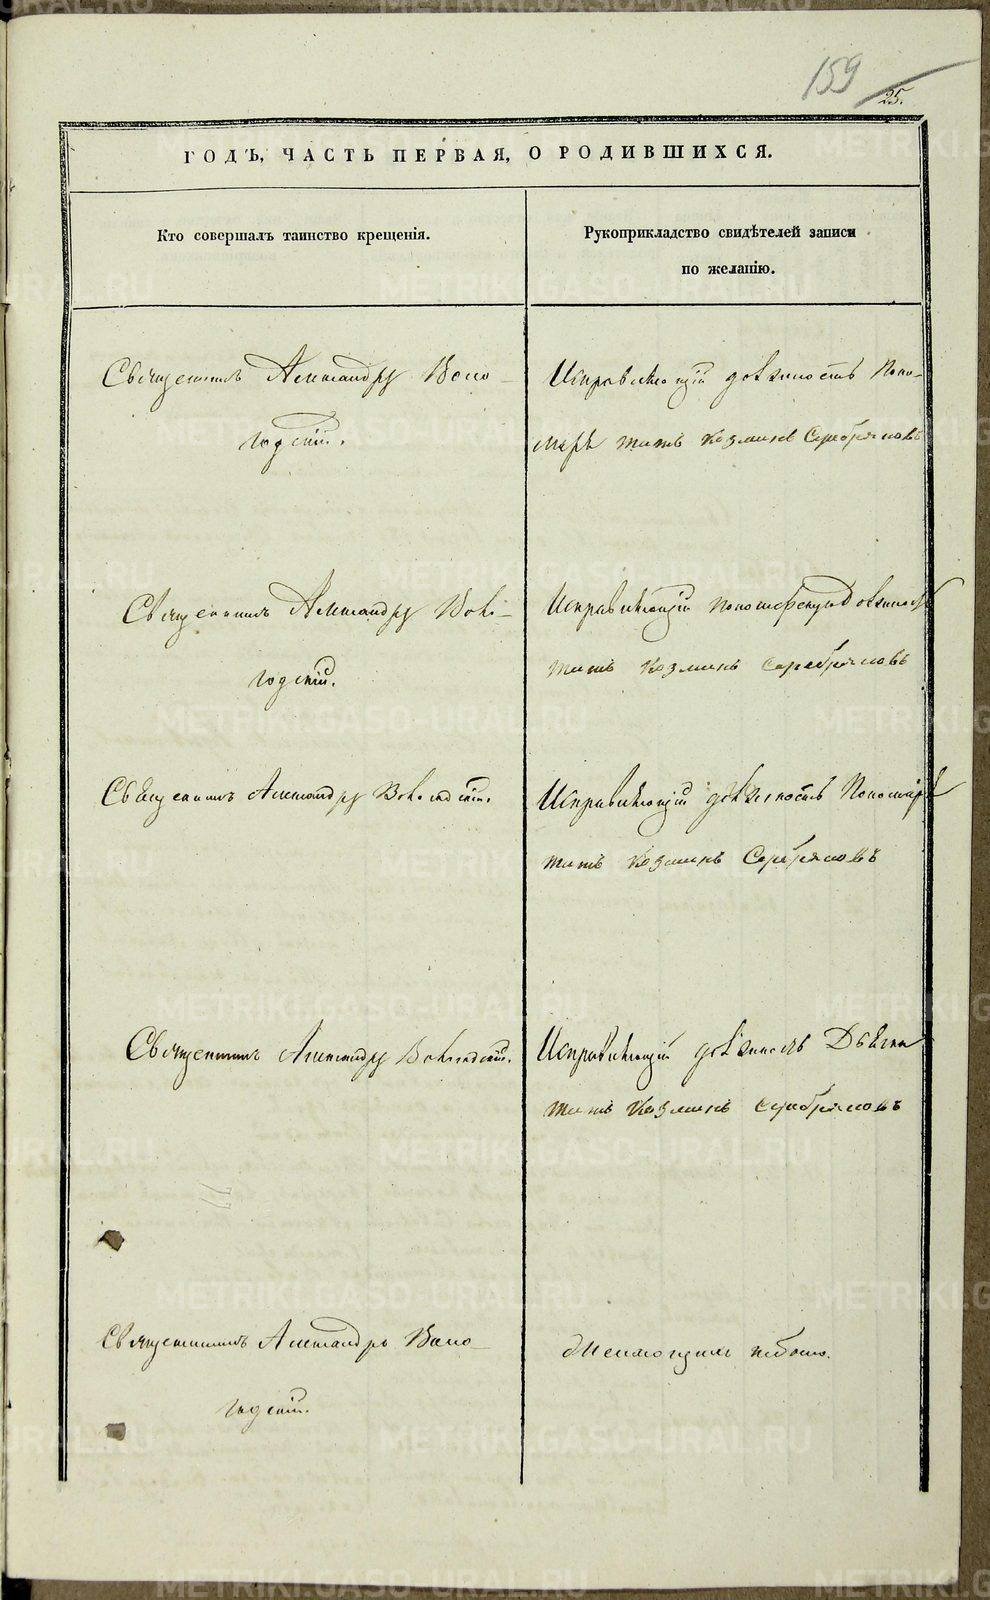 159
25.
ГОДЪ, ЧАСТЬ ПЕРВАЯ, О РОДИВШИХСЯ.
Кто совершалъ таинство крещенія.
Рукоприкладство свидѣтелей записи
по желанію.
Священникъ Александръ Воло-
годскій.
Исправляющій должность Поно-
маря Титъ Козминъ Серебряковъ
Священникъ Александръ Воло-
годскій.
Исправляющій пономарскую должность
Титъ Козминъ Серебряковъ
Священникъ Александръ Вологодскій.
Исправляющій должность Пономаря
Титъ Козминъ Серебряковъ
Священникъ Александръ Вологодскій.
Исправляющій должность Дьячка
Титъ Козминъ Серебряковъ
Священникъ Александръ Воло-
годскій.
небыло.
METRIKI.GASO-URAL.RU